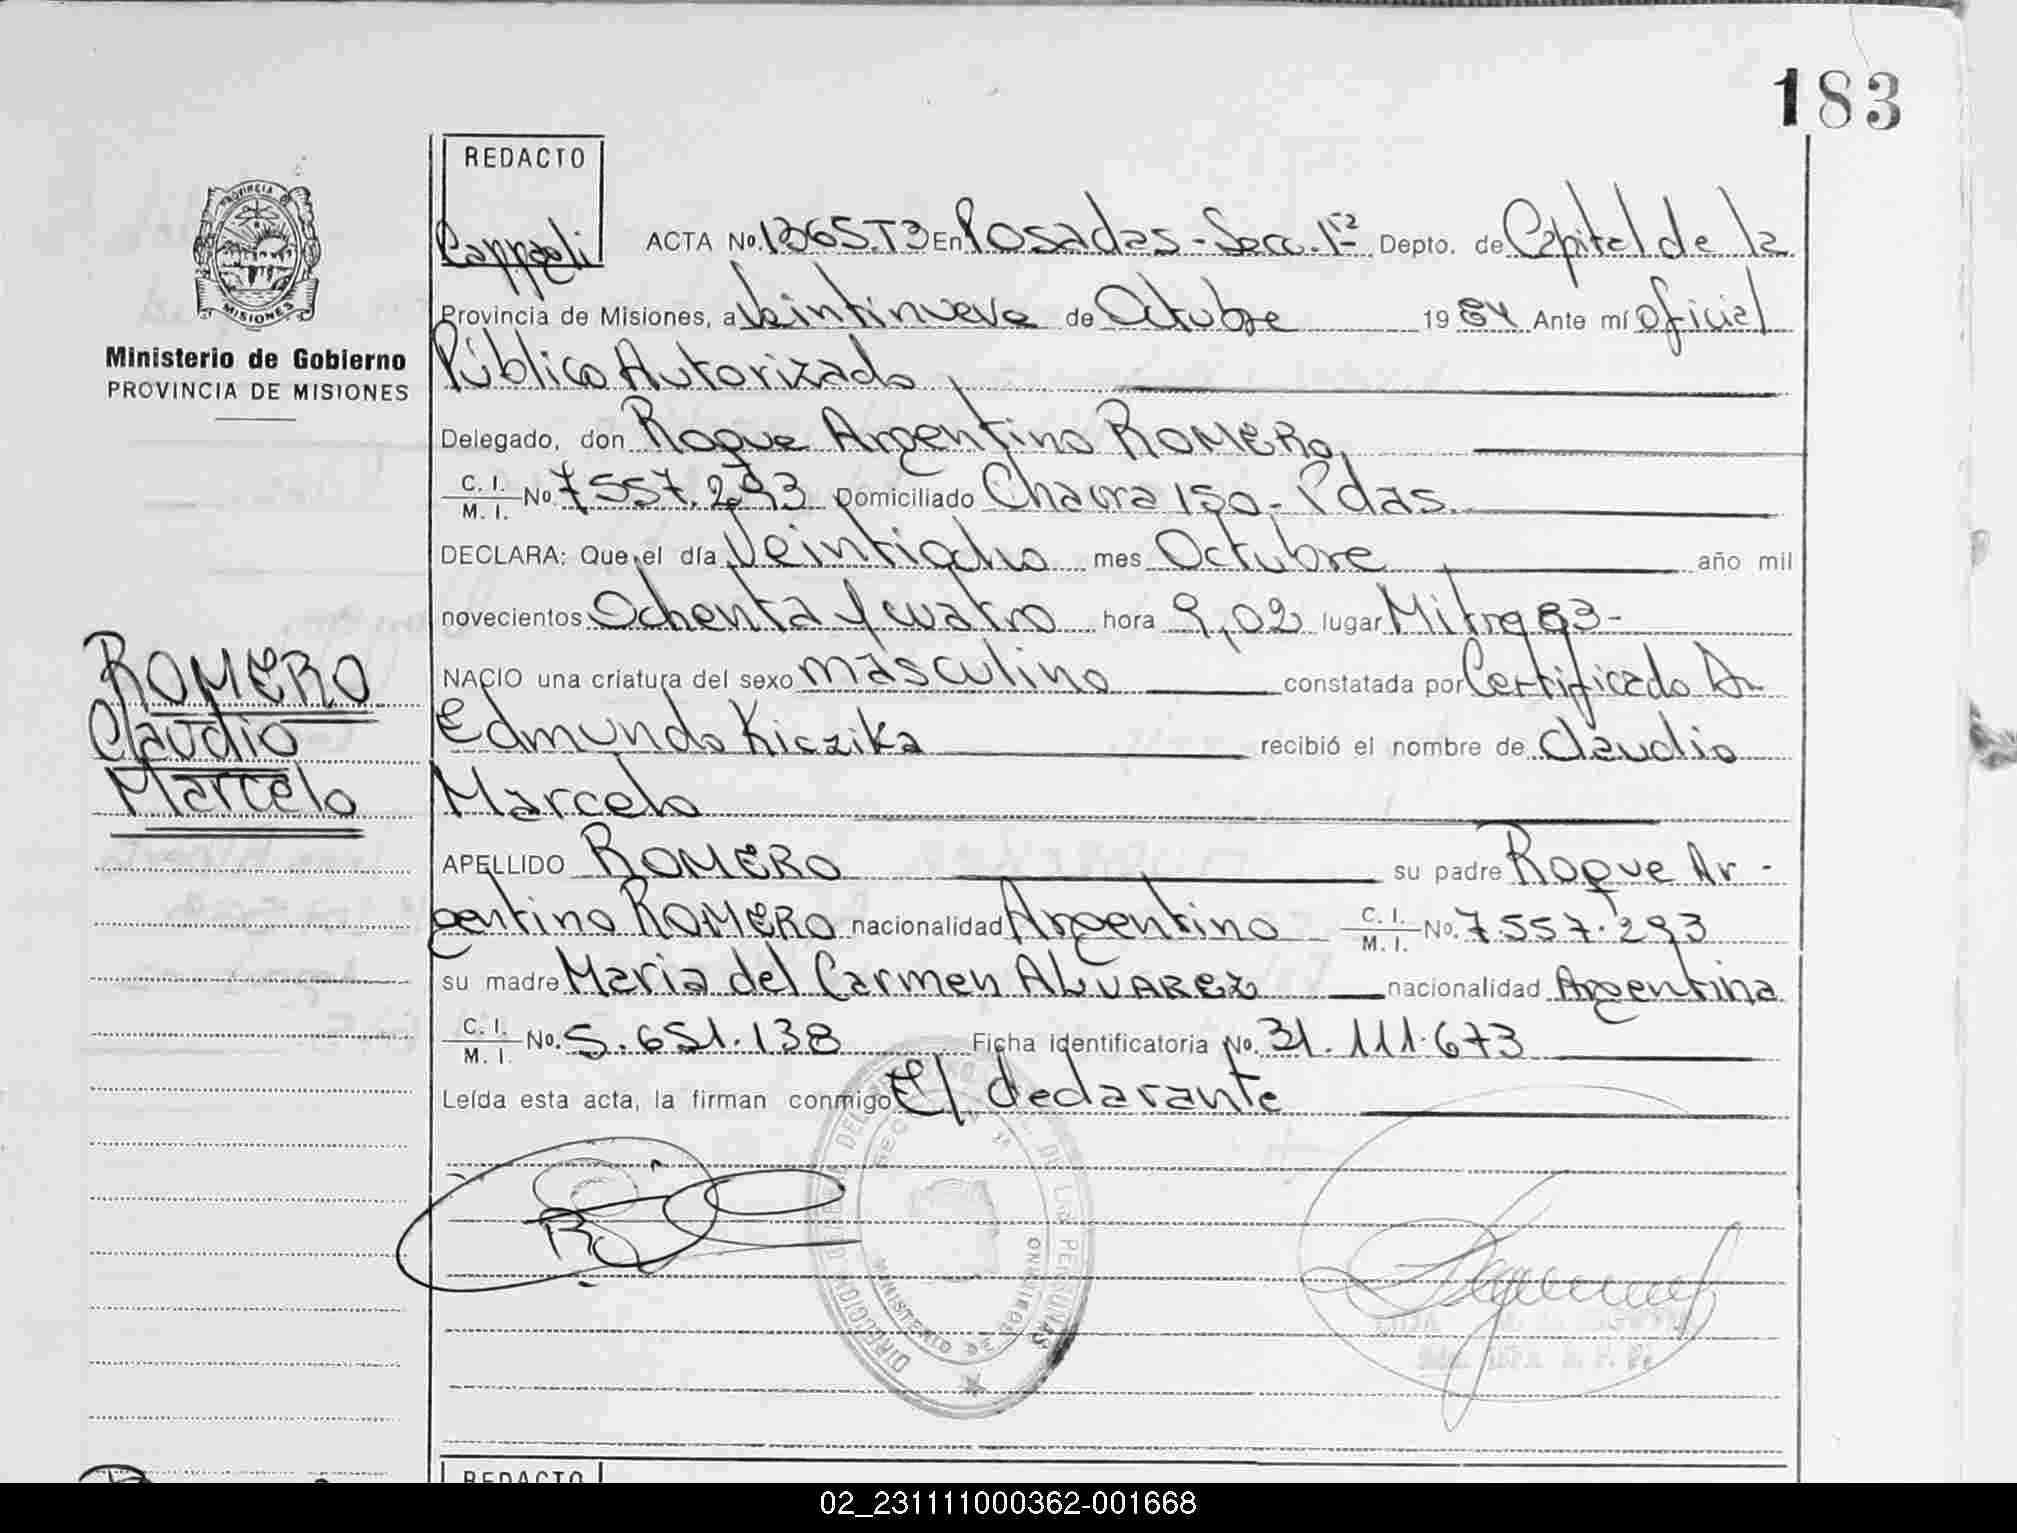 183
REDACTO
Cappeli
ACTA No. 1365.T3 En Posadas - Secc. 1ª Depto. de Capital de la
Provincia de Misiones, a Veintinueve de Octubre 1984 Ante mí Oficial
Público Autorizado,
Delegado, don Roque Argentino ROMERO,
C. I.
M. I. No. 7557.293 Domiciliado Chacra 150 - Pdas.
DECLARA: Que el día Veintiocho mes Octubre año mil
novecientos Ochenta y cuatro hora 9,02 lugar Mitre 83-
NACIO una criatura del sexo masculino constatada por Certificado Dr
Edmundo Kiczika recibió el nombre de Claudio
Marcelo
APELLIDO ROMERO su padre Roque Ar-
gentino ROMERO nacionalidad Argentino C. I. M. I. No. 7.557.293
su madre Maria del Carmen ALVAREZ nacionalidad Argentina
C. I.
M. I. No. 5.651.138 Ficha identificatoria No. 31.111.673
Leída esta acta, la firman conmigo El declarante
PROVINCIA
MISIONES
Ministerio de Gobierno
PROVINCIA DE MISIONES
ROMERO
Claudio
Marcelo
DE LAS PERSONAS
DIRECCION
MINISTERIO DE GOBIERNO
REDACTO
02_231111000362-001668